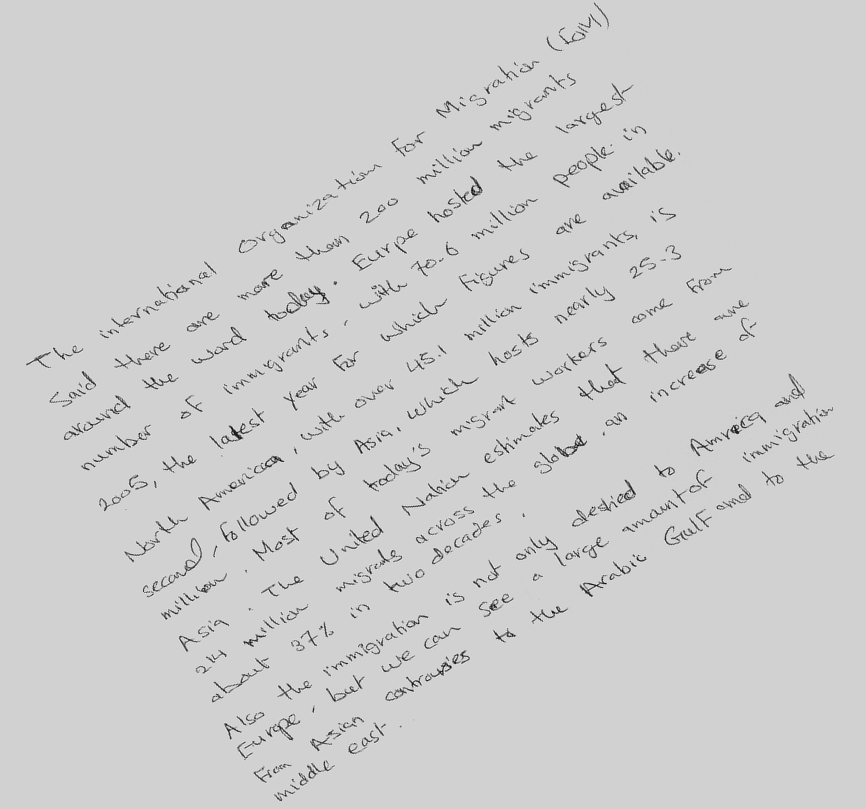 The international Organization for Migration (IOM)
Said there are more than 200 million migrants
around the word today. Eurpe hosted the largest
number of immigrants, with 70.6 million people in
2005, the latest year for which figures are available.
North American, with over 45.1 million immigrants, is
second, followed by Asia, which hosts nearly 25.3
million. Most of today's migrant workers come from
Asia. The United Nation estimates that there are
214 million migrants across the globe, an increase of
about 37% in two decades.
Also the immigration is not only destied to Amreica and
Europe, but we can see a large amount of immigration
From Asian contrauies to the Arabic Gulf and to the
middle east.